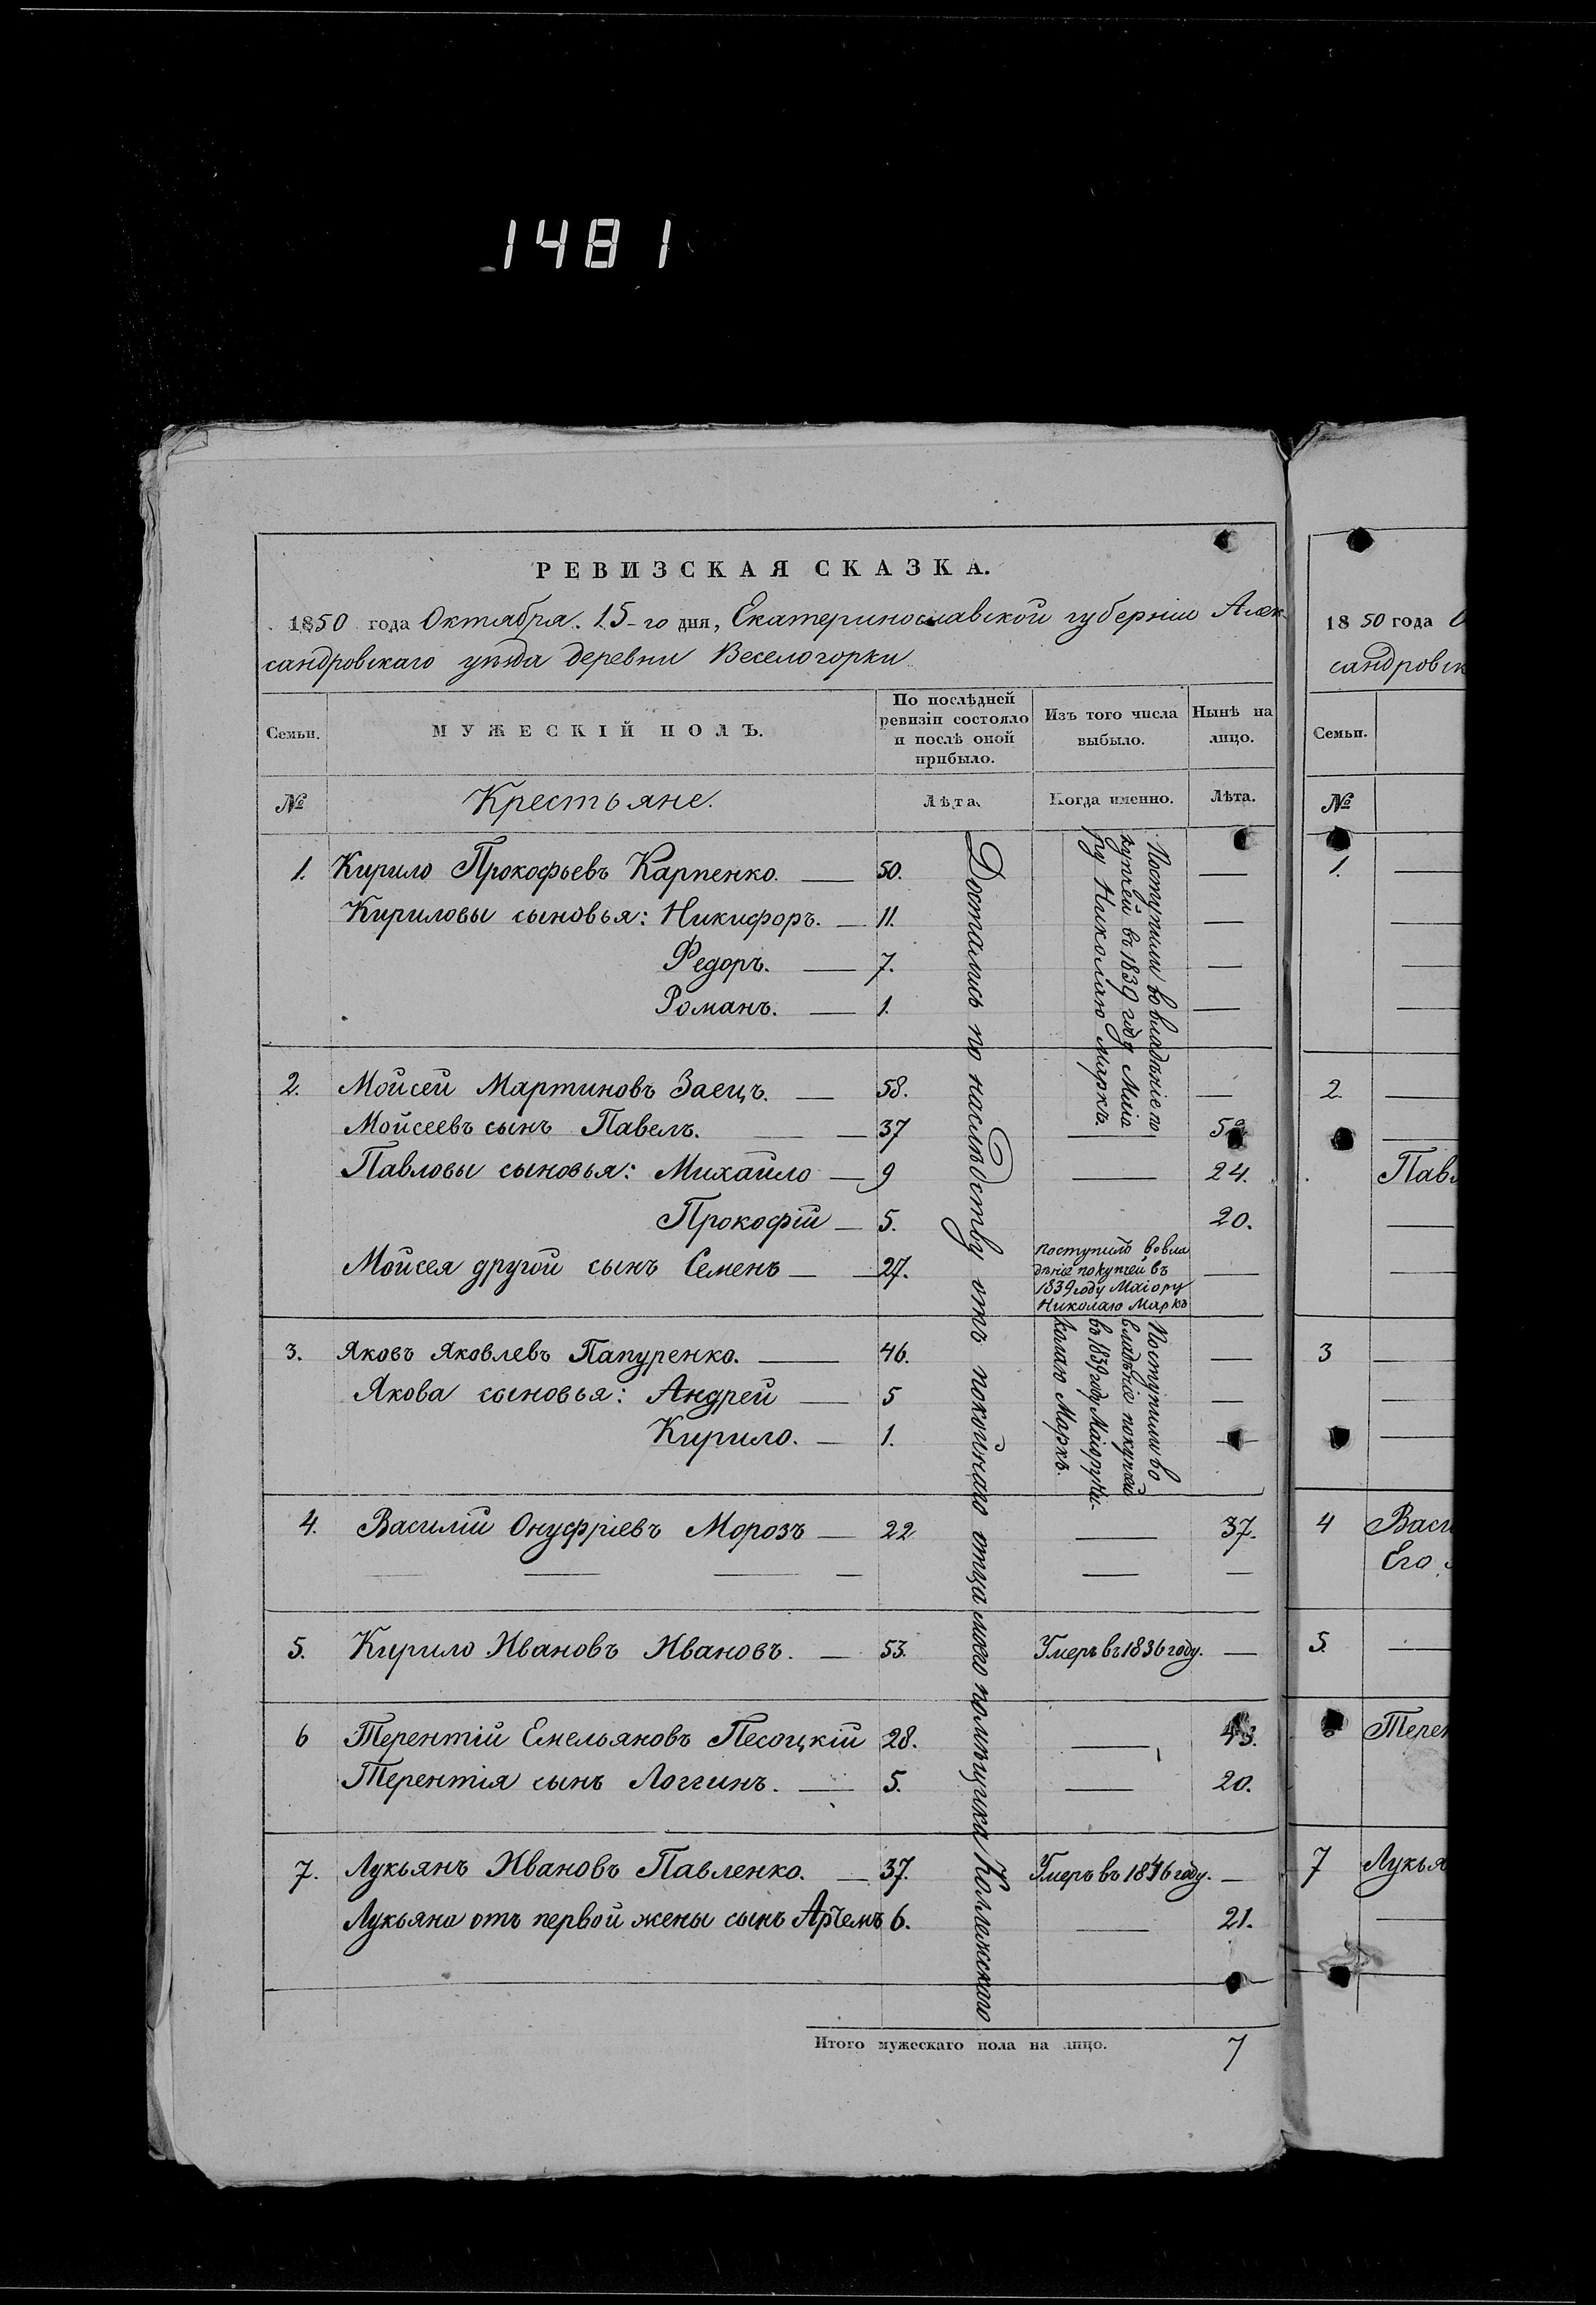 1481
РЕВИЗСКАЯ СКАЗКА.
1850 года Октября 15-го дня, Екатеринославской губерніи Алек-
сандровскаго уѣзда деревни Веселогорки
Семьи.
МУЖЕСКІЙ ПОЛЪ.
По послѣдней
ревизіи состояло
и послѣ оной
прибыло.
Изъ того числа
выбыло.
Нынѣ на
лицо.
№
Крестьяне.
Лѣта.
Когда именно.
Лѣта.
1. Кирило Прокофьевъ Карпенко. — 50. —
Кириловы сыновья: Никифоръ. — 11. —
Федоръ. — 7. —
Романъ. — 1. —
Поступили во владѣніе по
купчей въ 1839 году Маіо
ру Николаю Маркъ.
2. Мойсей Мартиновъ Заецъ. — 58. —
Мойсеевъ сынъ Павелъ. — 37 —
Павловы сыновья: Михайло — 9 — 24.
Прокофій — 5. 20.
Мойсея другой сынъ Семенъ — 27. —
поступилъ во вла
дѣніе покупчей въ
1839 году Маіору
Николаю Маркъ
3. Яковъ Яковлевъ Папуренко. — 46. —
Якова сыновья: Андрей — 5 —
Кирило. — 1. —
Поступили во
владѣніе покупчей
въ 1839 году Маіору Ни-
колаю Маркъ.
4. Василій Онуфріевъ Морозъ — 22 — 37.
— — — — — —
5. Кирило Ивановъ Ивановъ. — 53. Умеръ въ 1836 году. —
6 Терентій Емельяновъ Песоцкій 28. — 43.
Терентія сынъ Логгинъ. — 5. — 20.
7. Лукьянъ Ивановъ Павленко. — 37. Умеръ въ 1846 году. —
Лукьяна отъ первой жены сынъ Артемъ 6. — 21.
Достались по наслѣдству отъ покойнаго отца моего помѣщика Коллежскаго
Итого мужескаго пола на лицо. 7
1850 года О
сандровск
Семьи.
№
1.
2.
Павл
3
4 Васи
Его
5.
Терен
7 Лукья